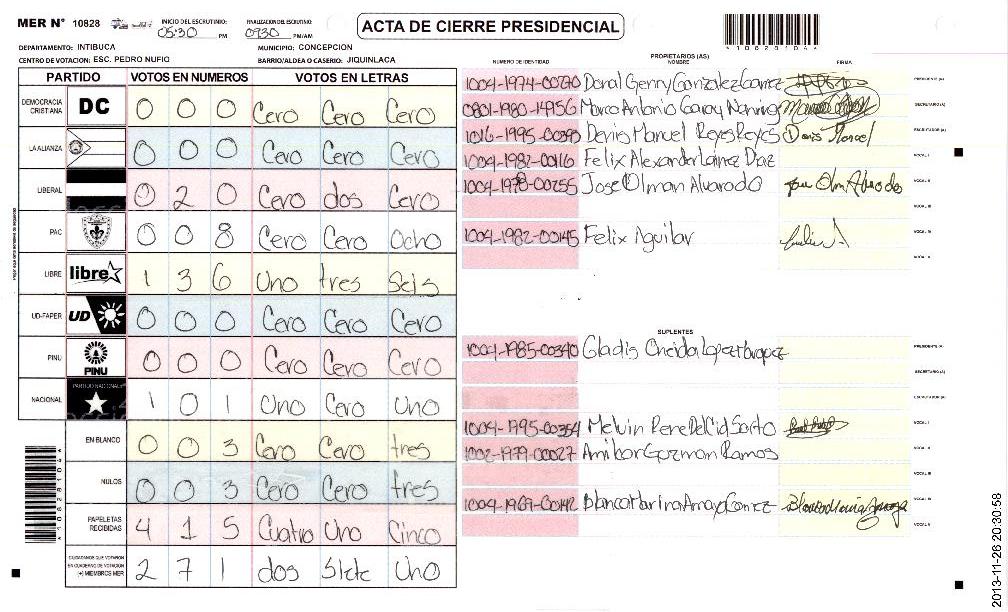 MER N° 10828
INICIO DEL ESCRUTINIO: 05:30 PM
FINALIZACION DEL ESCRUTINIO: 0930 PM/AM
ACTA DE CIERRE PRESIDENCIAL
DEPARTAMENTO: INTIBUCA
MUNICIPIO: CONCEPCION
CENTRO DE VOTACION: ESC. PEDRO NUFIO
BARRIO/ALDEA O CASERIO: JIQUINLACA
PARTIDO VOTOS EN NUMEROS VOTOS EN LETRAS
DEMOCRACIA CRISTIANA DC 0 0 0 Cero Cero Cero
LA ALIANZA 0 0 0 Cero Cero Cero
LIBERAL 0 2 0 Cero dos Cero
PAC 0 0 8 Cero Cero Ocho
LIBRE libre 1 3 6 Uno tres Seis
UD-FAPER UD 0 0 0 Cero Cero Cero
PINU PINU 0 0 0 Cero Cero Cero
NACIONAL PARTIDO NACIONAL 1 0 1 Uno Cero Uno
EN BLANCO 0 0 3 Cero Cero tres
NULOS 0 0 3 Cero Cero tres
PAPELETAS RECIBIDAS 4 1 5 Cuatro Uno Cinco
CIUDADANOS QUE VOTARON EN CUADERNO DE VOTACION (+) MIEMBROS MER 2 7 1 dos Siete Uno
A10828104A
PROPIETARIOS (AS)
NUMERO DE IDENTIDAD NOMBRE FIRMA
1004-1974-00270 Gonzalez PRESIDENTE (A)
0801-1980-14956 Marco Antonio SECRETARIO (A)
1016-1995-00390 Denis Manuel Reyes Reyes ESCRUTADOR (A)
1004-1982-00116 Felix Alexander Lainez Diaz VOCAL I
1004-1978-00255 Jose Olman Alvarado VOCAL II
VOCAL III
1004-1982-00145 Felix Aguilar VOCAL IV
VOCAL V
SUPLENTES
1004-1985-00340 Gladis Oneida Lopez PRESIDENTE (A)
SECRETARIO (A)
ESCRUTADOR (A)
1004-1995-00354 Melvin Rene Del Cid Sorto VOCAL I
1002-1979-00027 Amilcar Guzman Ramos VOCAL II
VOCAL III
1004-1969-00142 Blanca Marina VOCAL IV
VOCAL V
A10828104A
2013-11-26 20:30:58